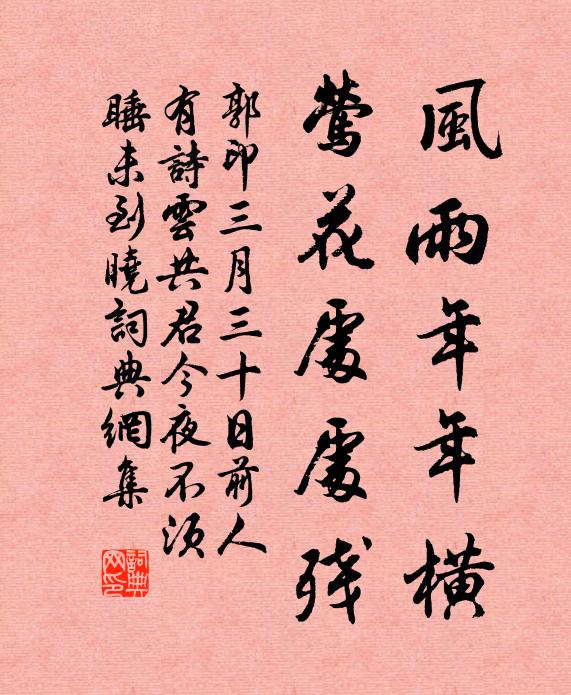 風雨年年橫
鶯花處處殘
郭印三月三十日前人
有詩雲共君今夜不須
睡未到曉詞典網集
詞典網印